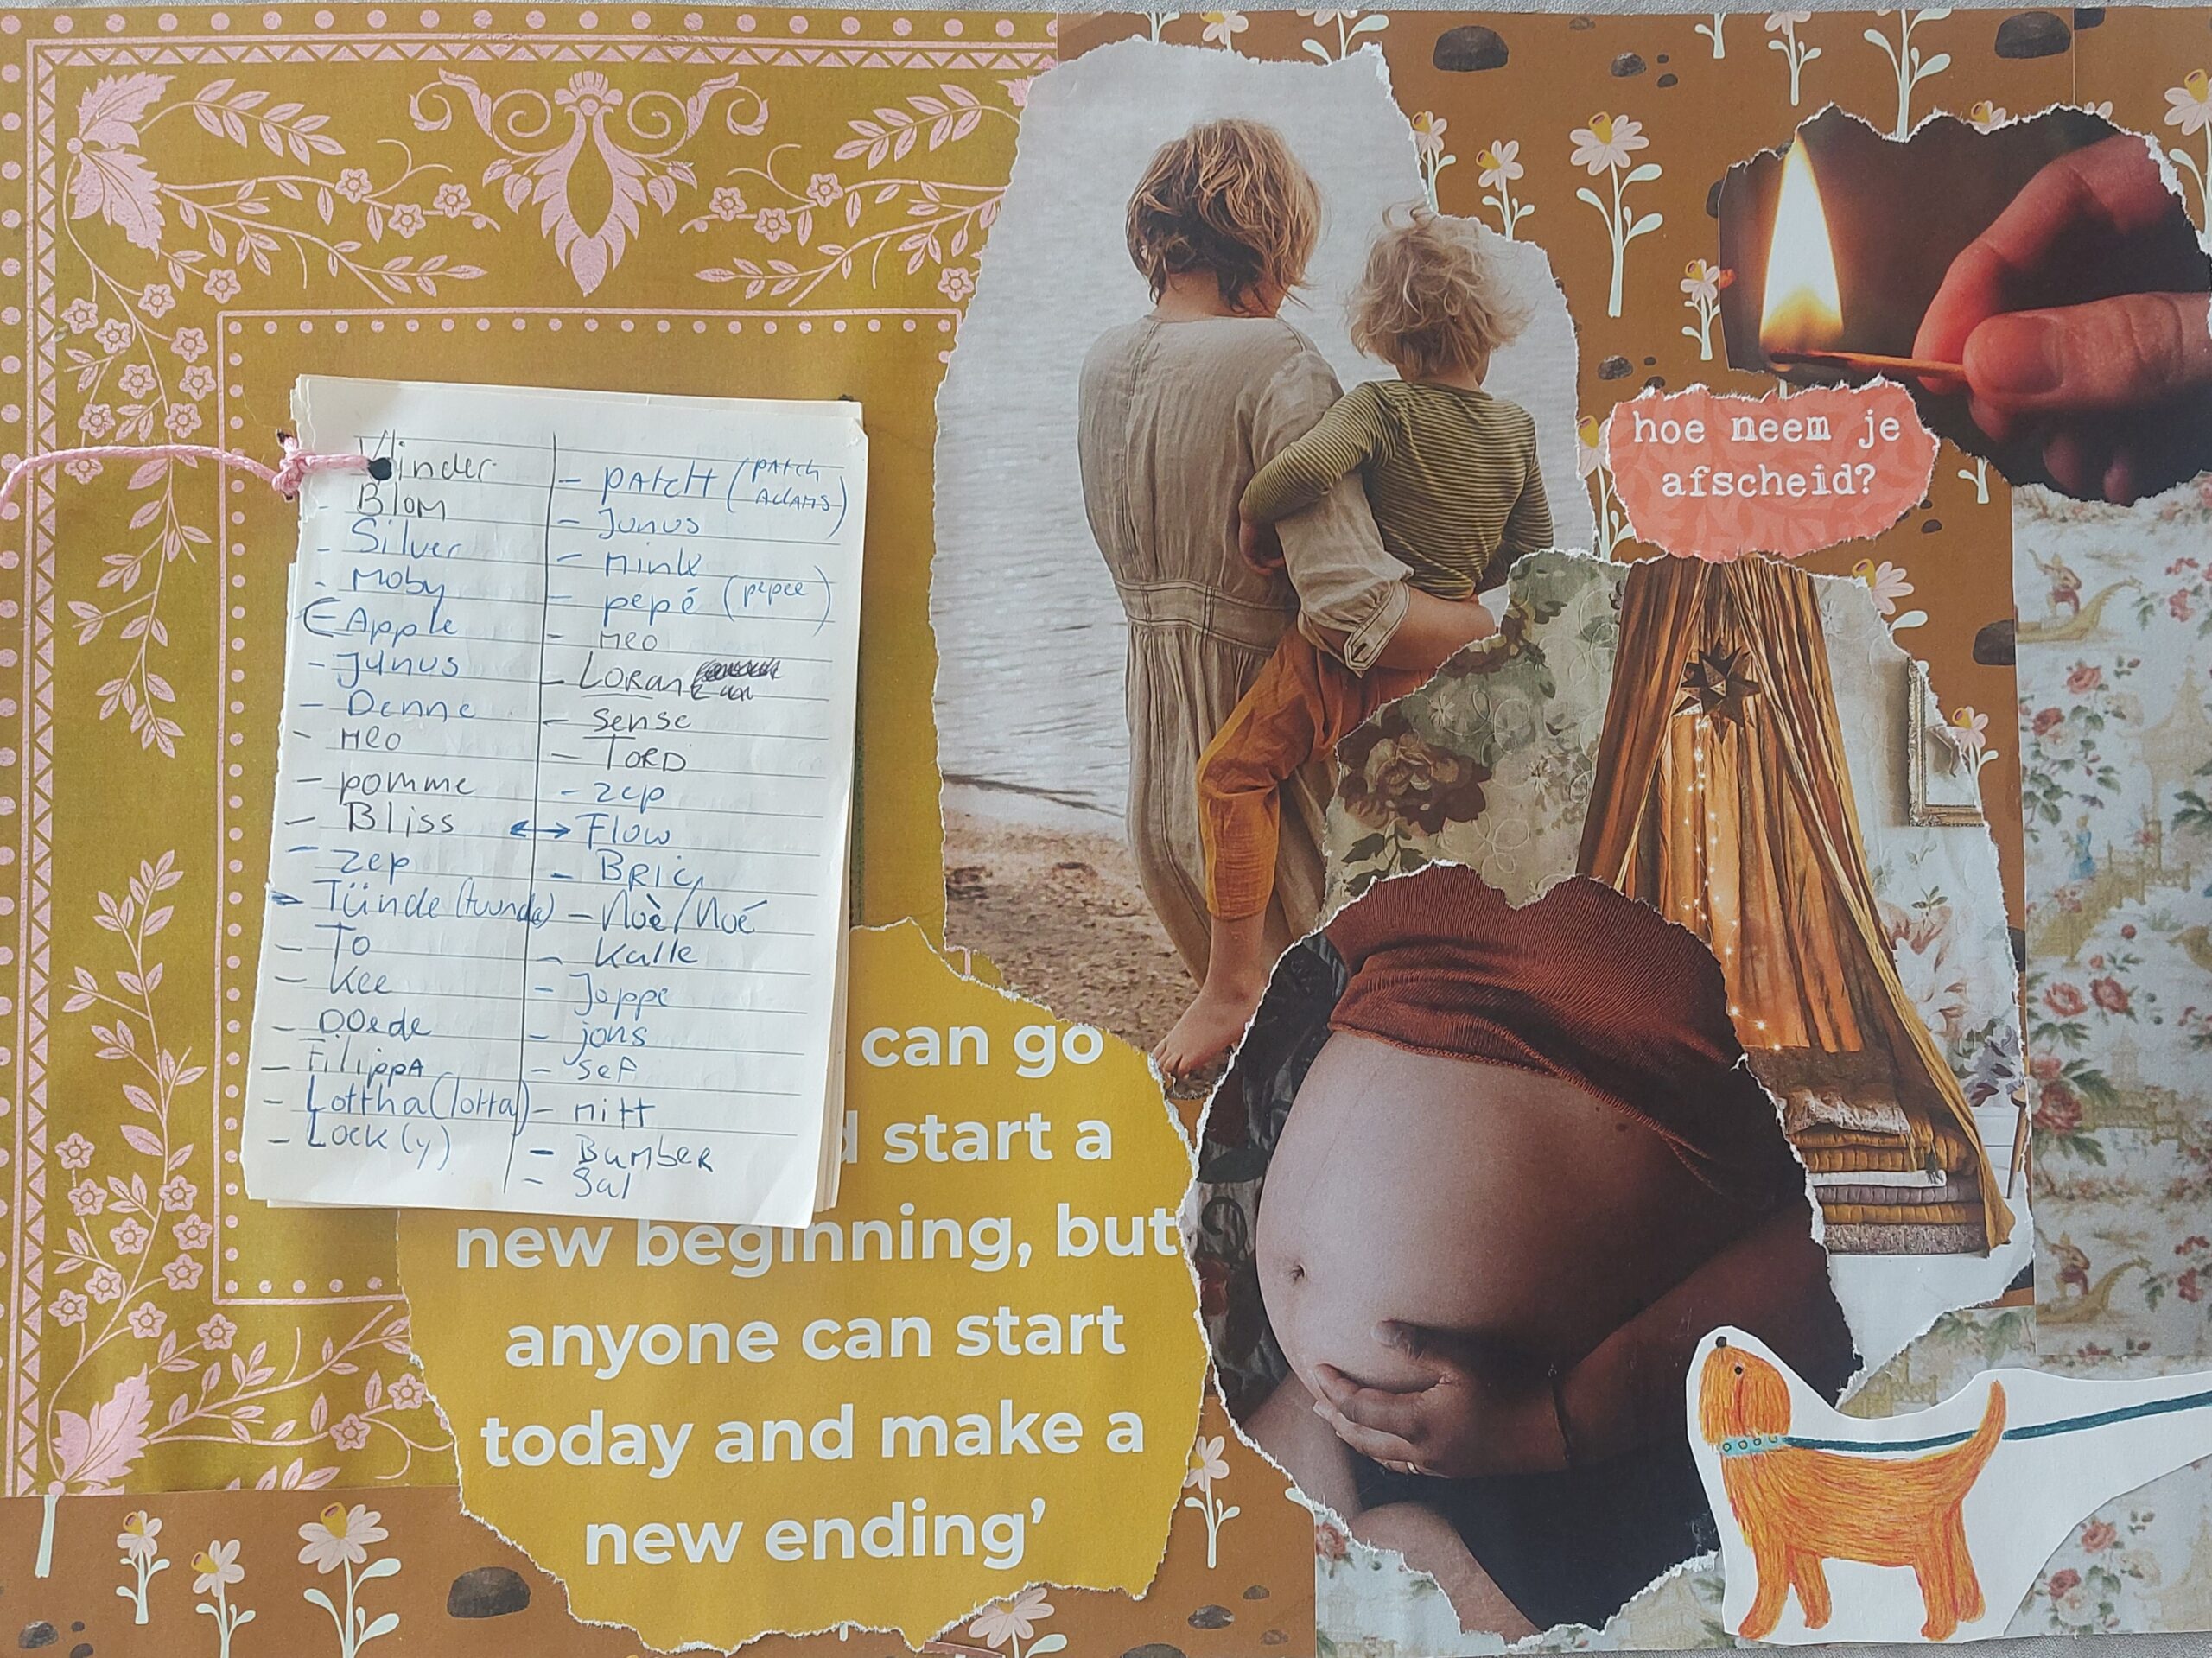 Vlinder
- Blom
- Silver
- Moby
(- Apple
- Junus
- Denne
- Meo
- pomme
- Bliss ↔
- zep
- Tünde (tuunde)
- To
- Kee
- DOede
- FilippA
- Lottha (lotta)
- Lock(y)
- PAtcH (PAtch
AdAMS)
- Junus
- Mink
- pepé (pepee)
- Meo
- LORan
- Sense
- TORD
- zep
Flow
- BRIC
- Noè/Noé
- Kalle
- Joppe
- jons
- Sef
- Mitt
- BumbeR
- Sal
can go
start a
new beginning, but
anyone can start
today and make a
new ending'
hoe neem je
afscheid?